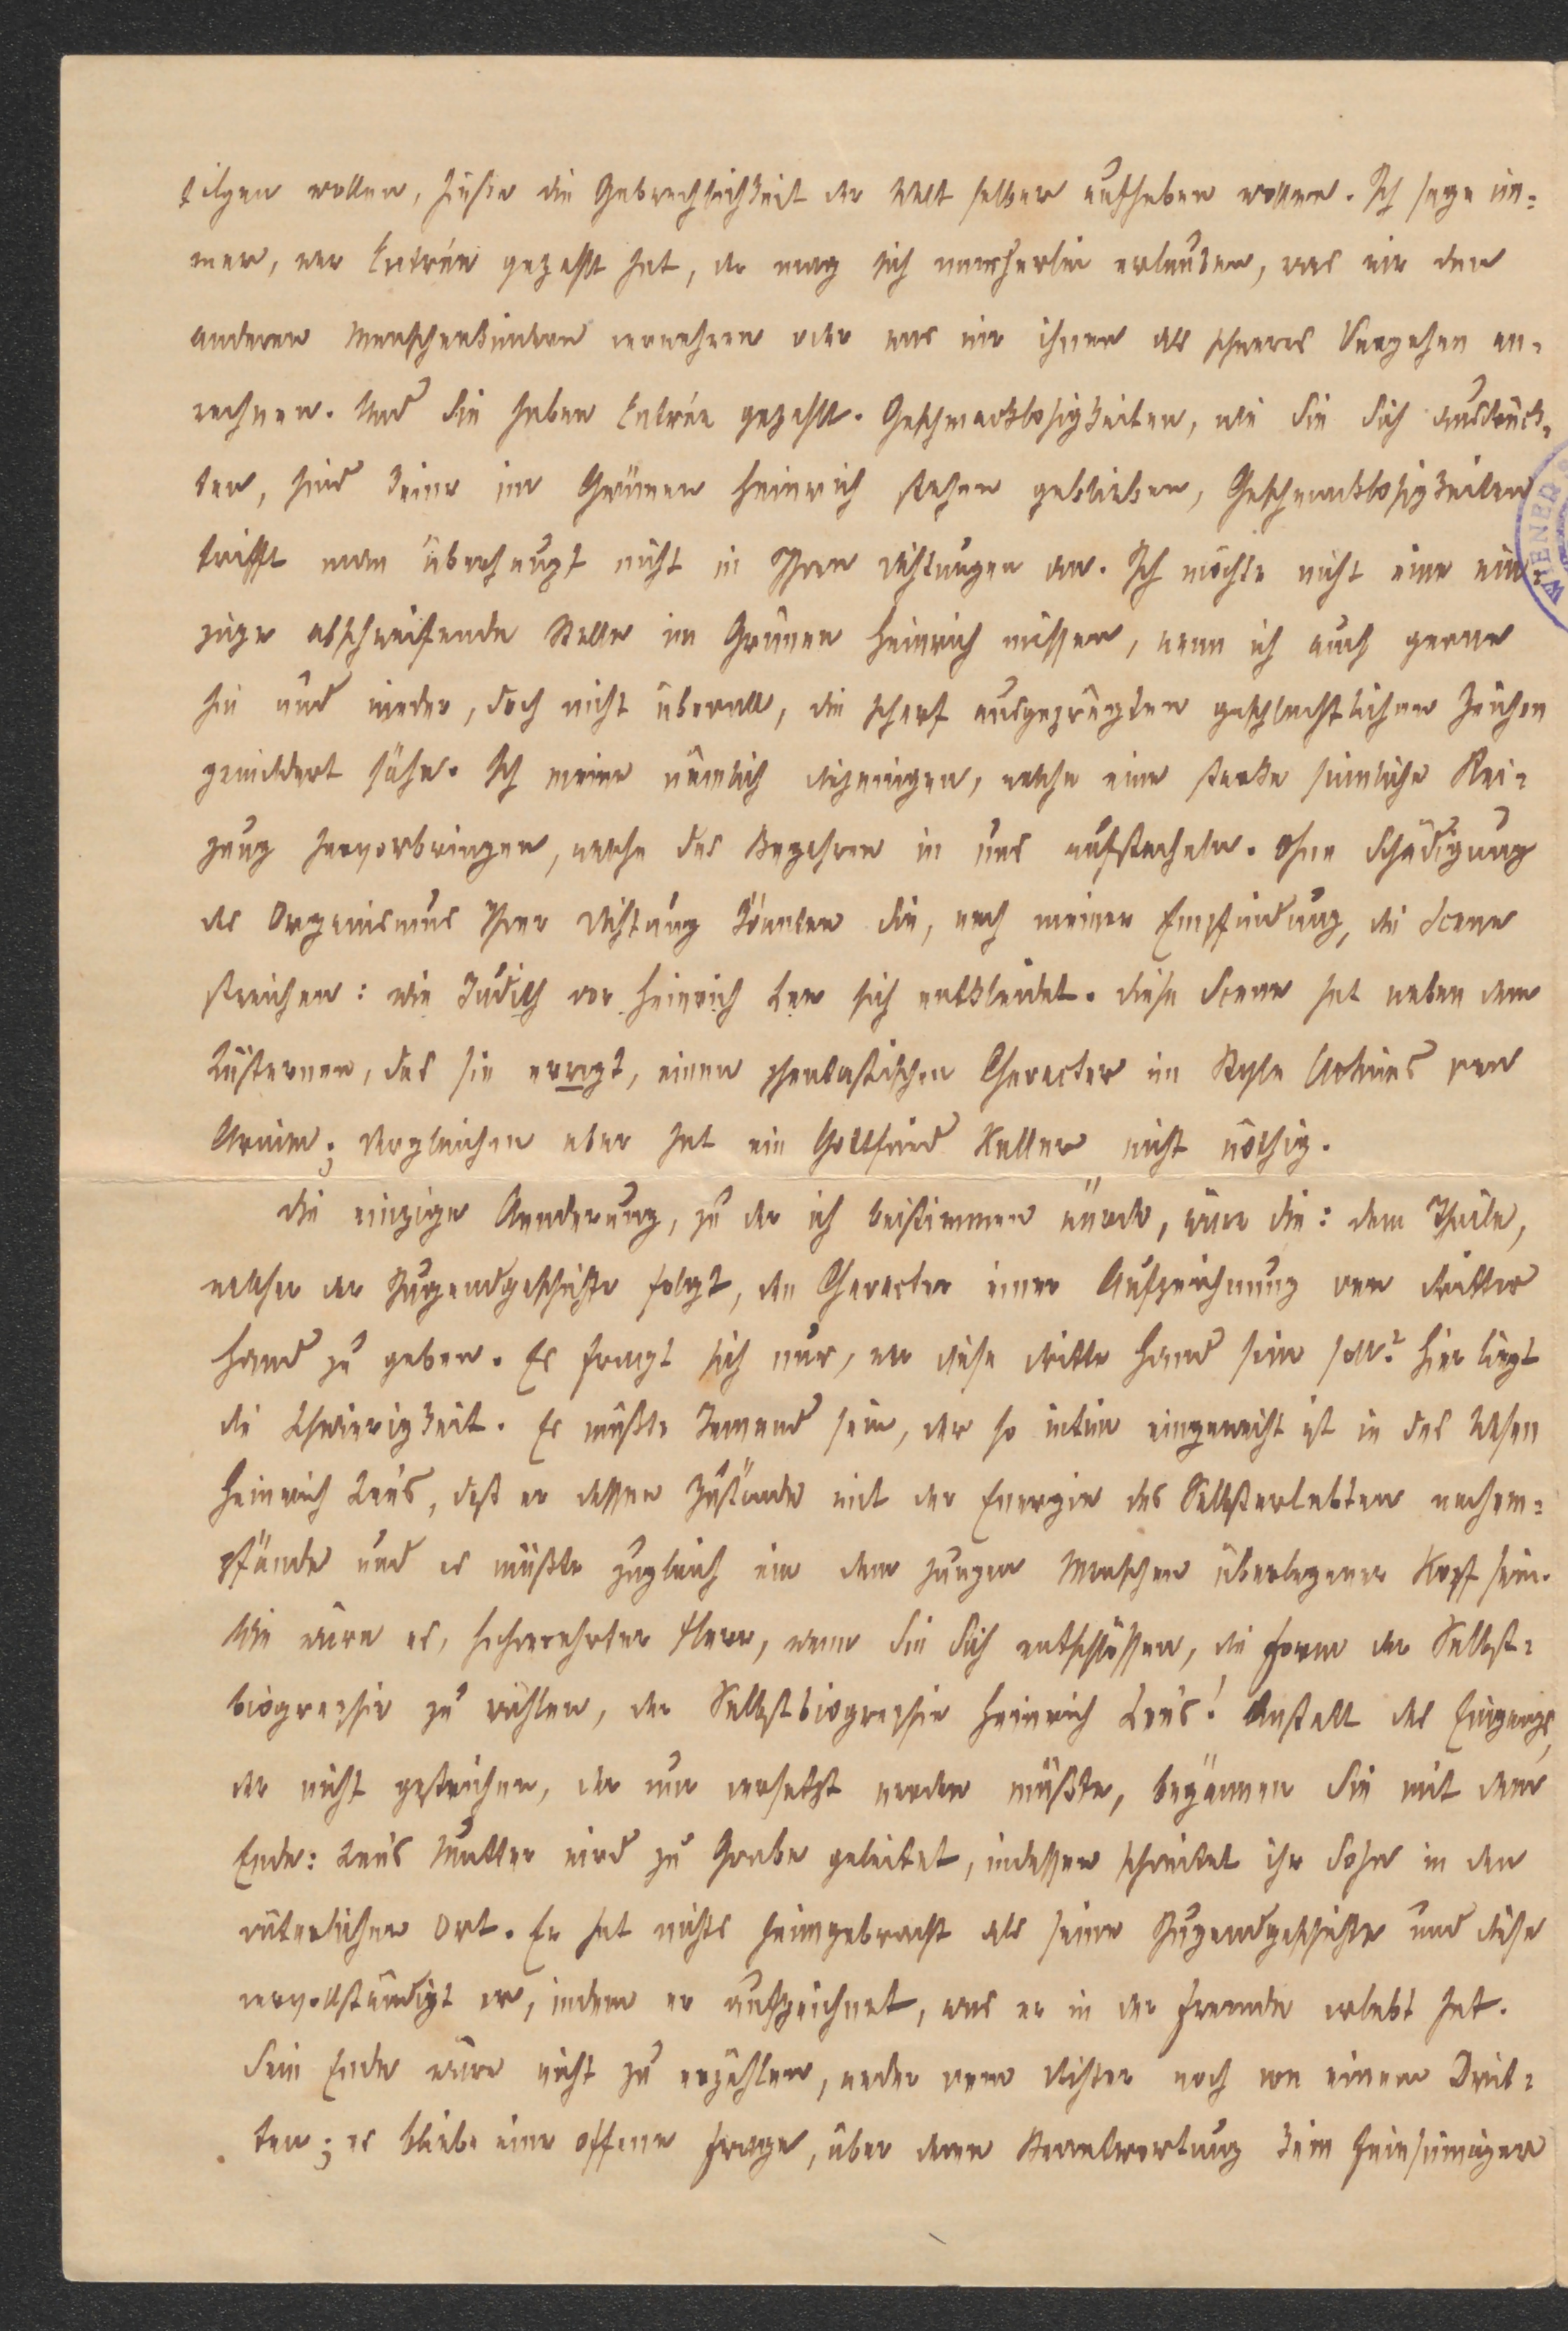 tilgen wollen, hieße die Gebrechlichkeit der Welt selber aufheben wollen. Ich sage im-
mer, wer Entrée gezahlt hat, der mag sich mancherlei erlauben, was wir den
anderen Menschenkindern verwehren oder was wir ihnen als schweres Vergehen an-
rechnen. Und Sie haben Entrée gezahlt. Geschmacklosigkeiten, wie Sie Sich ausdrück-
ten, sind keine im Grünen Heinrich stehen geblieben, Geschmacklosigkeiten
trifft man überhaupt nicht in Ihren Dichtungen an. Ich möchte nicht eine ein-
zige abschweifende Stelle im Grünen Heinrich missen, wenn ich auch gerne
hie und wieder, doch nicht überall, die scharf ausgeprägten geschlechtlichen Zeichen
gemildert sähe. Ich meine nämlich diejenigen, welche eine starke sinnliche Rei-
zung hervorbringen, welche das Begehren in uns aufstacheln. Ohne Schädigung
des Organismus Ihrer Dichtung könnten Sie, nach meiner Empfindung, die Scene
streichen: wie Judith vor Heinrich Lee sich entkleidet. Diese Scene hat neben dem
Lüsternen, das sie erregt, einen phantastischen Character im Style Achims von
Arnim; dergleichen aber hat ein Gottfried Keller nicht nöthig.
Die einzige Aenderung, zu der ich beistimmen würde, wäre die: dem Theile,
welcher der Jugendgeschichte folgt, den Character einer Aufzeichnung von dritter
Hand zu geben. Es fragt sich nur, wer diese dritte Hand sein soll? Hier liegt
die Schwierigkeit. Es müßte Jemand sein, der so intim eingeweiht ist in das Wesen
Heinrich Lee's, daß er dessen Zustände mit der Energie des Selbsterlebten nachem-
pfände und es müßte zugleich ein dem jungen Menschen überlegener Kopf sein.
Wie wäre es, hochverehrter Herr, wenn Sie Sich entschlössen, die Form der Selbst-
biographie zu wählen, der Selbstbiographie Heinrich Lee's! Anstatt des Eingangs,
der nicht gestrichen, der nur versetzt werden müßte, begännen Sie mit dem
Ende: Lee's Mutter wird zu Grabe geleitet, indessen schreitet ihr Sohn in den
väterlichen Ort. Er hat nichts heimgebracht als seine Jugendgeschichte und diese
vervollständigt er, indem er aufzeichnet, was er in der Fremde erlebt hat.
Sein Ende wäre nicht zu erzählen, weder vom Dichter noch von einem Drit-
ten; es bliebe eine offene Frage, über deren Beantwortung kein feinsinniger
WIENER